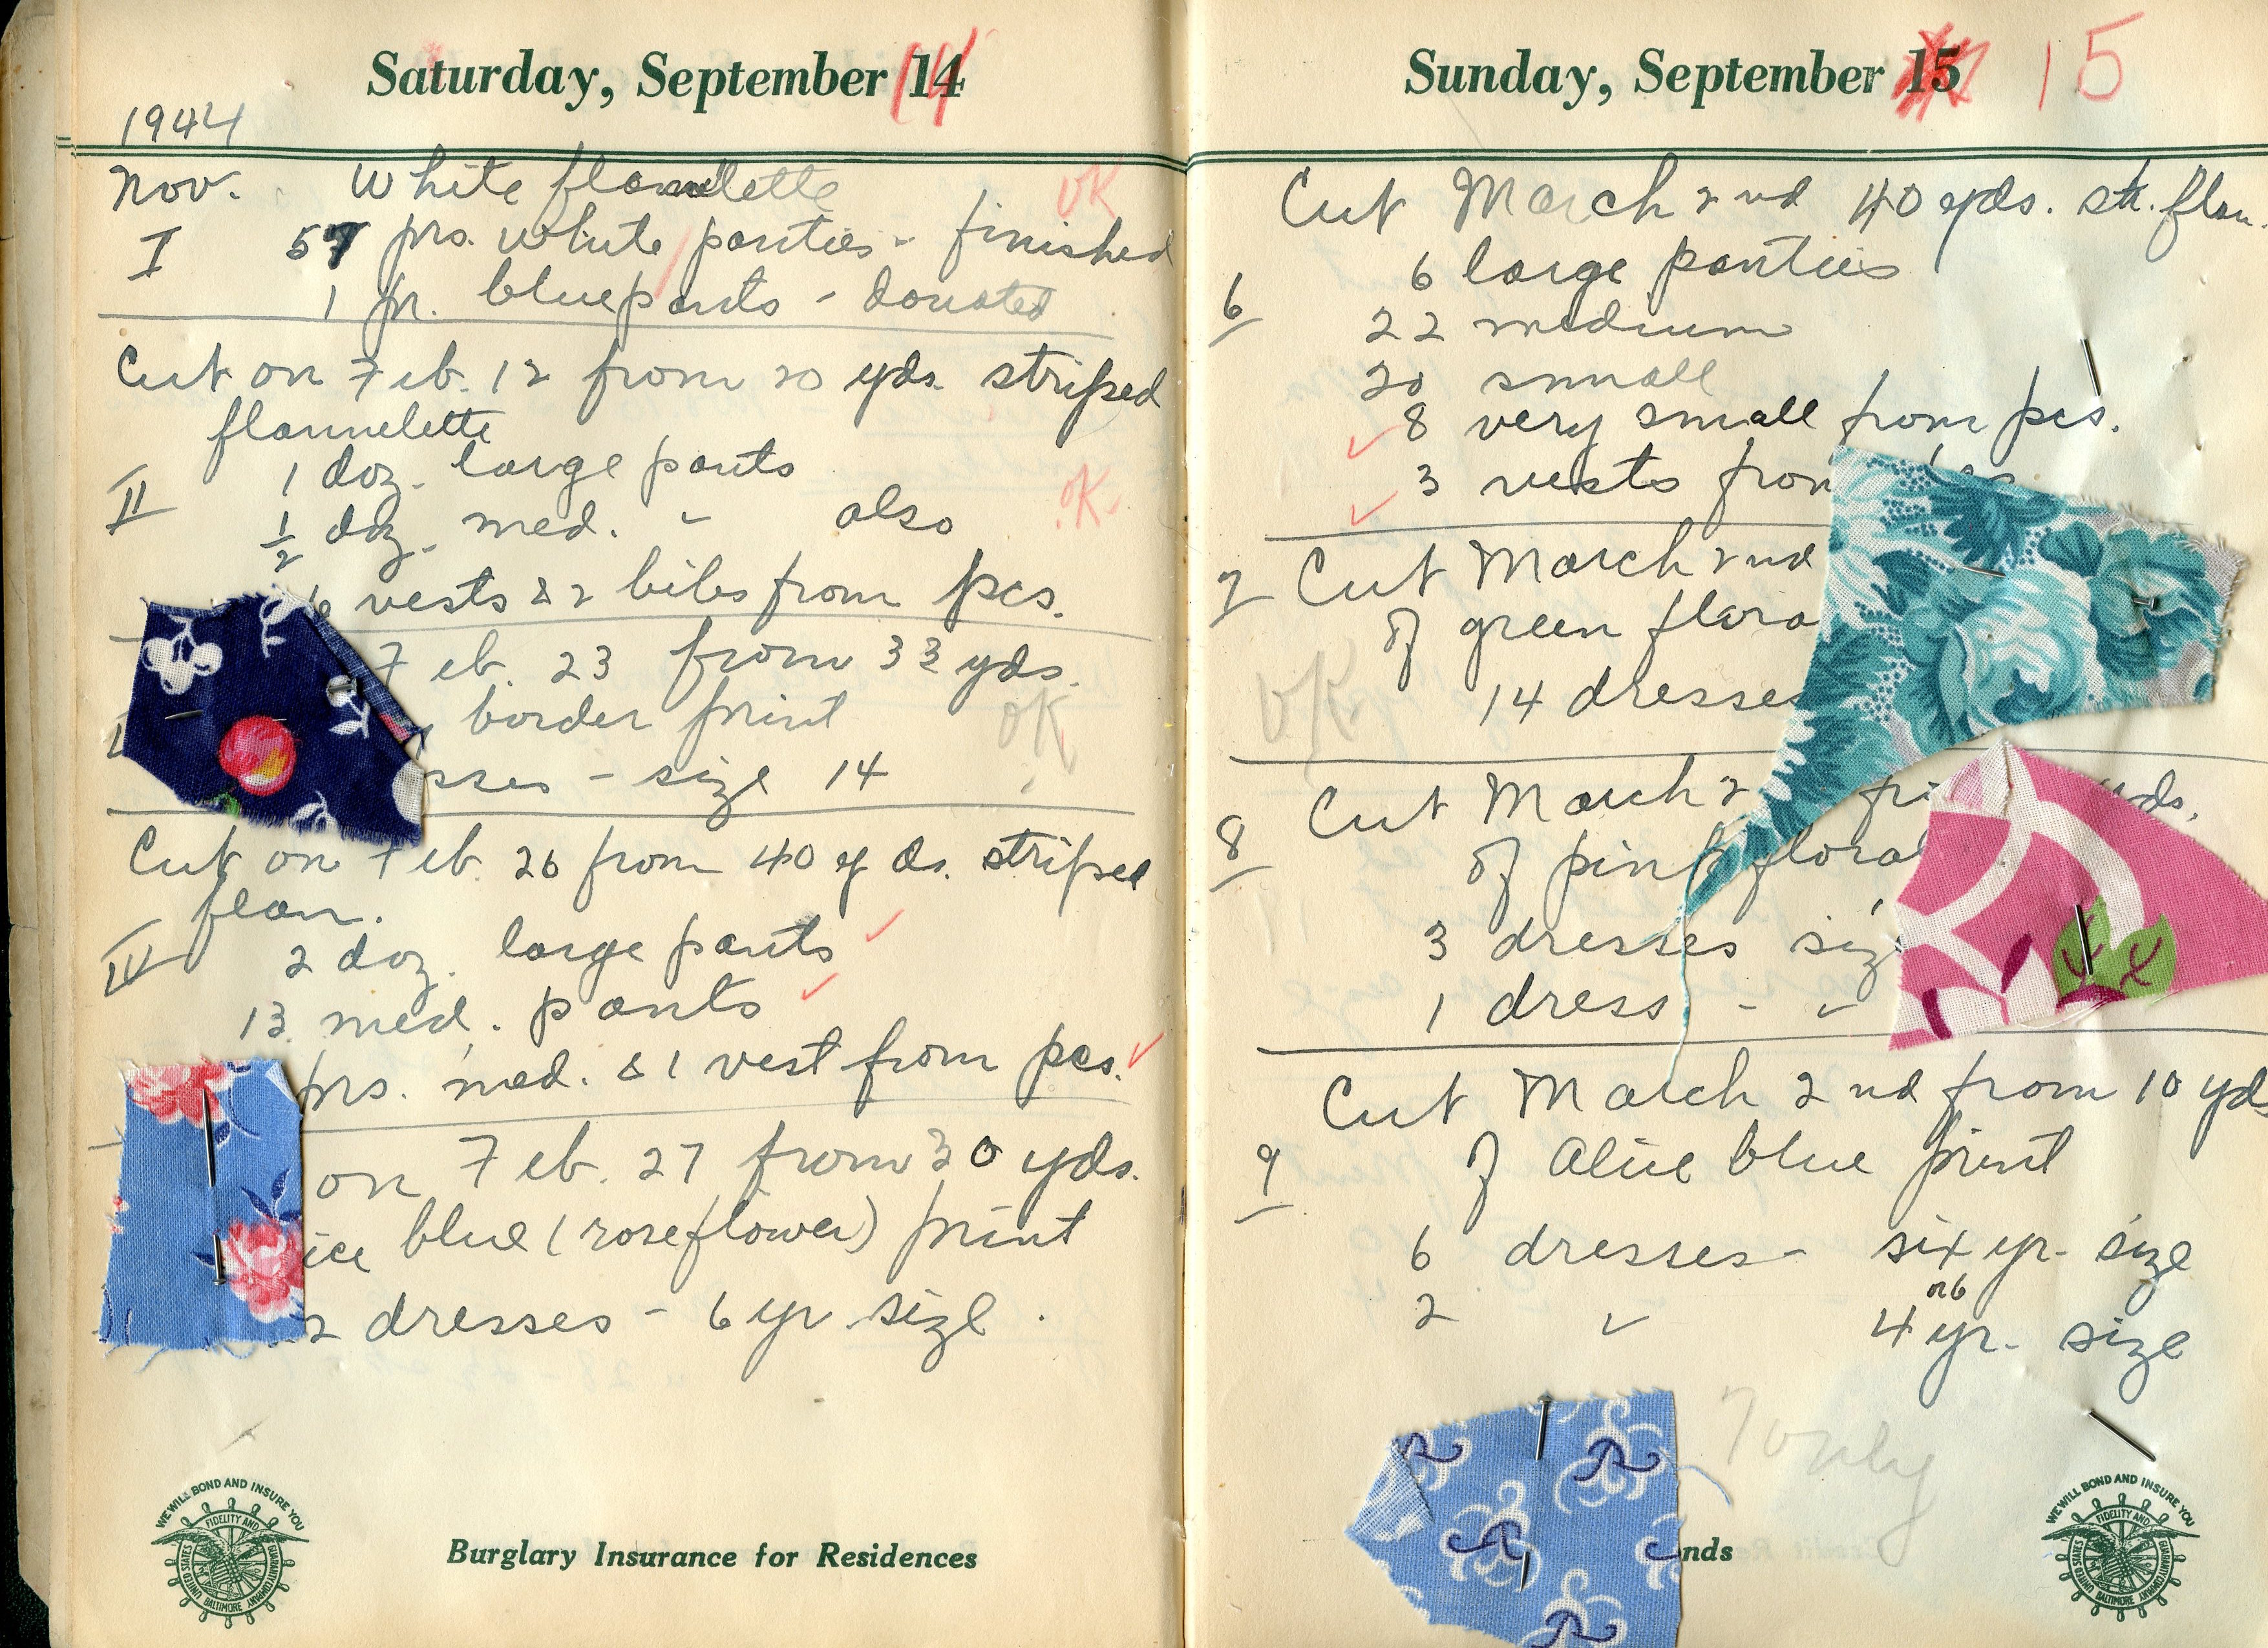 Saturday, September 14
14
1944
Nov. White flannelette
OK
I 57 prs. white panties - finished
1 pr. blue pants - donated
Cut on Feb. 12 from 20 yds. striped
flannelette
II 1 doz. large pants
OK
1/2 doz. med. " also
6 vests & 2 bibs from pcs.
Feb. 23 from 33 yds.
border print
OK
sses - size 14
Cut on Feb. 26 from 40 yds. striped
flan.
IV 2 doz. large pants ✓
13 med. pants ✓
prs. med. & 1 vest from pcs. ✓
on Feb. 27 from 30 yds.
ice blue (rose flower) print
2 dresses - 6 yr. size.
WE WILL BOND AND INSURE YOU
UNITED STATES FIDELITY AND GUARANTY COMPANY BALTIMORE
Burglary Insurance for Residences
Sunday, September 15
15
Cut March 2nd 40 yds. str. flan.
6 6 large panties
22 medium
20 small
✓ 8 very small from pcs.
✓ 3 vests from
7 Cut March 2nd
of green flora
OK 14 dresses
Cut March 2 yds.
8 of pink floral
3 dresses siz
1 dress - "
Cut March 2nd from 10 yds
9 of Alice blue print
6 dresses - six yr. size
or 6
2 " 4 yr. size
7 only
nds
WE WILL BOND AND INSURE YOU
UNITED STATES FIDELITY AND GUARANTY COMPANY BALTIMORE